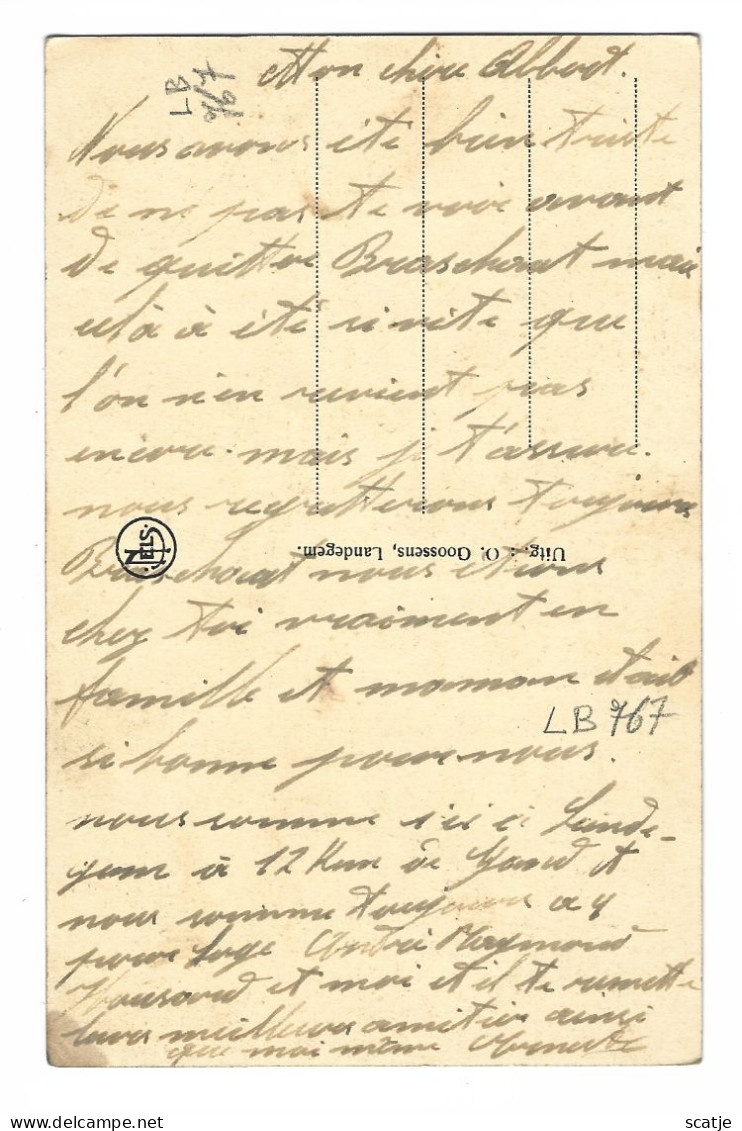 Mon chère Albert.
LB
Nous avons été bien triste
de ne pas te voir avant
de quitter Braschout mais
celà à été si vite que
l'on n'en revient pas
encore. mais je t'assure.
nous regretterons toujours
NELS
Uitg. : O. Goossens, Landegem.
Braschout nous étions
chez toi vraiment en
famille et maman était
LB 767
si bonne pour nous.
nous somme ici à Lande-
gem à 12 Km de Gand et
nous somme toujours a 4
pour loge André Raymond
et moi et il te remette
leurs meilleures amitier ainsi
que moi même Ernest
scatje — Delcampe.net